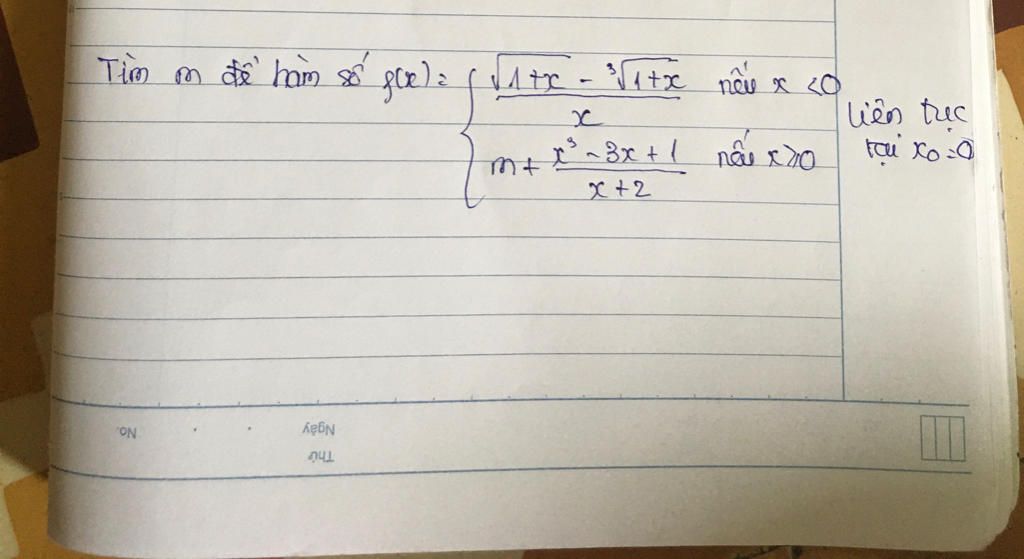 Tìm m để hàm số f(x) = { (√(1+x) - ³√(1+x)) / x nếu x < 0
m + (x³ - 3x + 1) / (x + 2) nếu x ≥ 0
liên tục
tại x₀ = 0
No.
Ngày
Thứ